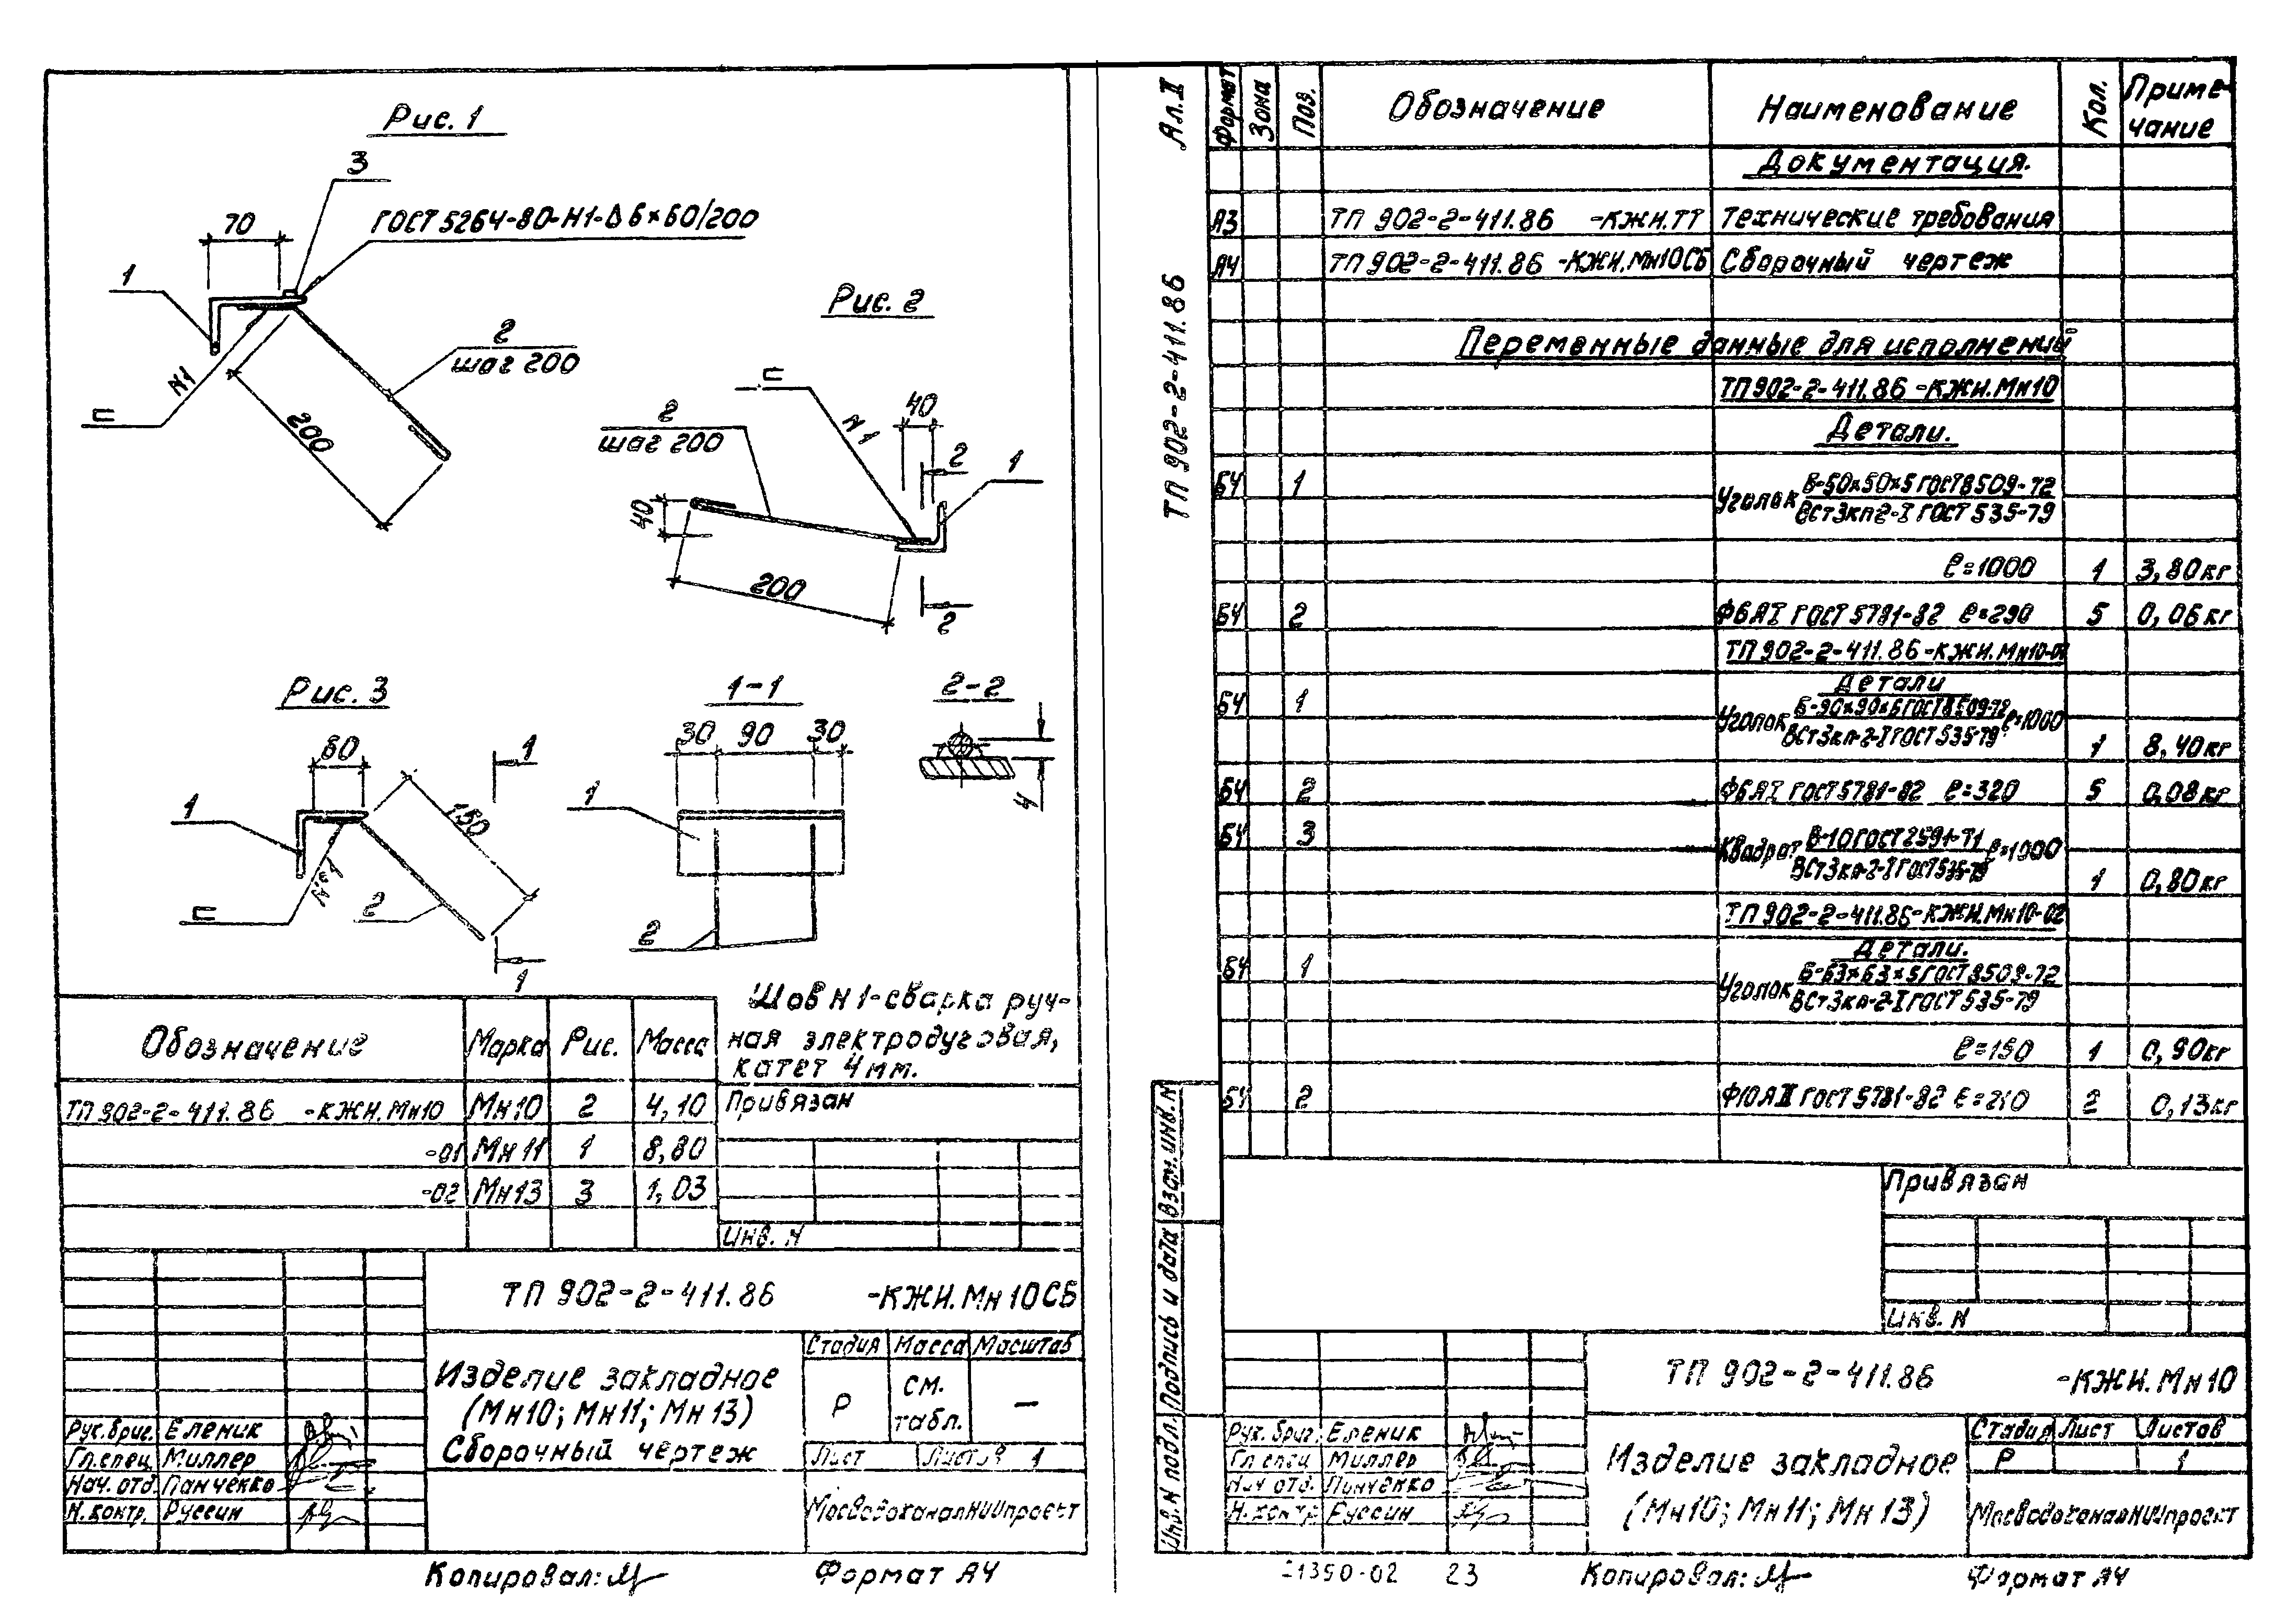 Рис. 1
3
70
ГОСТ 5264-80-Н1-Δ6×60/200
1
2
шаг 200
N1
200
Рис. 2
2
шаг 200
N1
40
2
1
40
200
2
Рис. 3
60
1
1
150
N1
2
1
1-1
30 90 30
1
2
2-2
4
Шов N1-сварка руч-
ная электродуговая,
катет 4мм.
Обозначение Марка Рис. Масса
ТП 902-2-411.86 -КЖИ.Мн10 Мн10 2 4,10
-01 Мн11 1 8,80
-02 Мн13 3 1,03
Привязан
Инв. N
ТП 902-2-411.86 -КЖИ.Мн10СБ
Изделие закладное
(Мн10; Мн11; Мн13)
Сборочный чертеж
Стадия Масса Масштаб
Р см. табл. —
Лист Листов 1
МосводоканалНИИпроект
Рук.бриг. Еленик
Гл.спец. Миллер
Нач. отд. Панченко
Н.контр. Руссин
Копировал:
Формат А4
Ал.II
ТП 902-2-411.86
Формат Зона Поз. Обозначение Наименование Кол. Приме-
чание
Документация.
А3 ТП 902-2-411.86 -КЖИ.ТТ Технические требования
А4 ТП 902-2-411.86 -КЖИ.Мн10СБ Сборочный чертеж
Переменные данные для исполнений
ТП 902-2-411.86 -КЖИ.Мн10
Детали.
БЧ 1 Уголок Б-50×50×5 ГОСТ 8509-72
ВСт3кп2-I ГОСТ 535-79
ℓ=1000 1 3,80кг
БЧ 2 Ф6АI ГОСТ 5781-82 ℓ=290 5 0,06кг
ТП 902-2-411.86-КЖИ.Мн10-01
Детали
БЧ 1 Уголок Б-90×90×6 ГОСТ 8509-72 ℓ=1000
ВСт3кп-2-I ГОСТ 535-79
1 8,40кг
БЧ 2 Ф6АI ГОСТ 5781-82 ℓ=320 5 0,08кг
БЧ 3 Квадрат В-10 ГОСТ 2591-71 ℓ=1000
ВСт3кп-2-I ГОСТ 535-79
1 0,80кг
ТП 902-2-411.86-КЖИ.Мн10-02
Детали.
БЧ 1 Уголок Б-63×63×5 ГОСТ 8509-72
ВСт3кп-2-I ГОСТ 535-79
ℓ=150 1 0,90кг
БЧ 2 Ф10АII ГОСТ 5781-82 ℓ=210 2 0,13кг
Привязан
Инв. N
Взам.инв.N
Подпись и дата
Инв.N подл.
ТП 902-2-411.86 -КЖИ.Мн10
Изделие закладное
(Мн10; Мн11; Мн13)
Стадия Лист Листов
Р 1
МосводоканалНИИпроект
Рук. бриг. Еленик
Гл. спец Миллер
Нач отд. Панченко
Н. контр. Руссин
21350-02 23
Копировал:
Формат А4